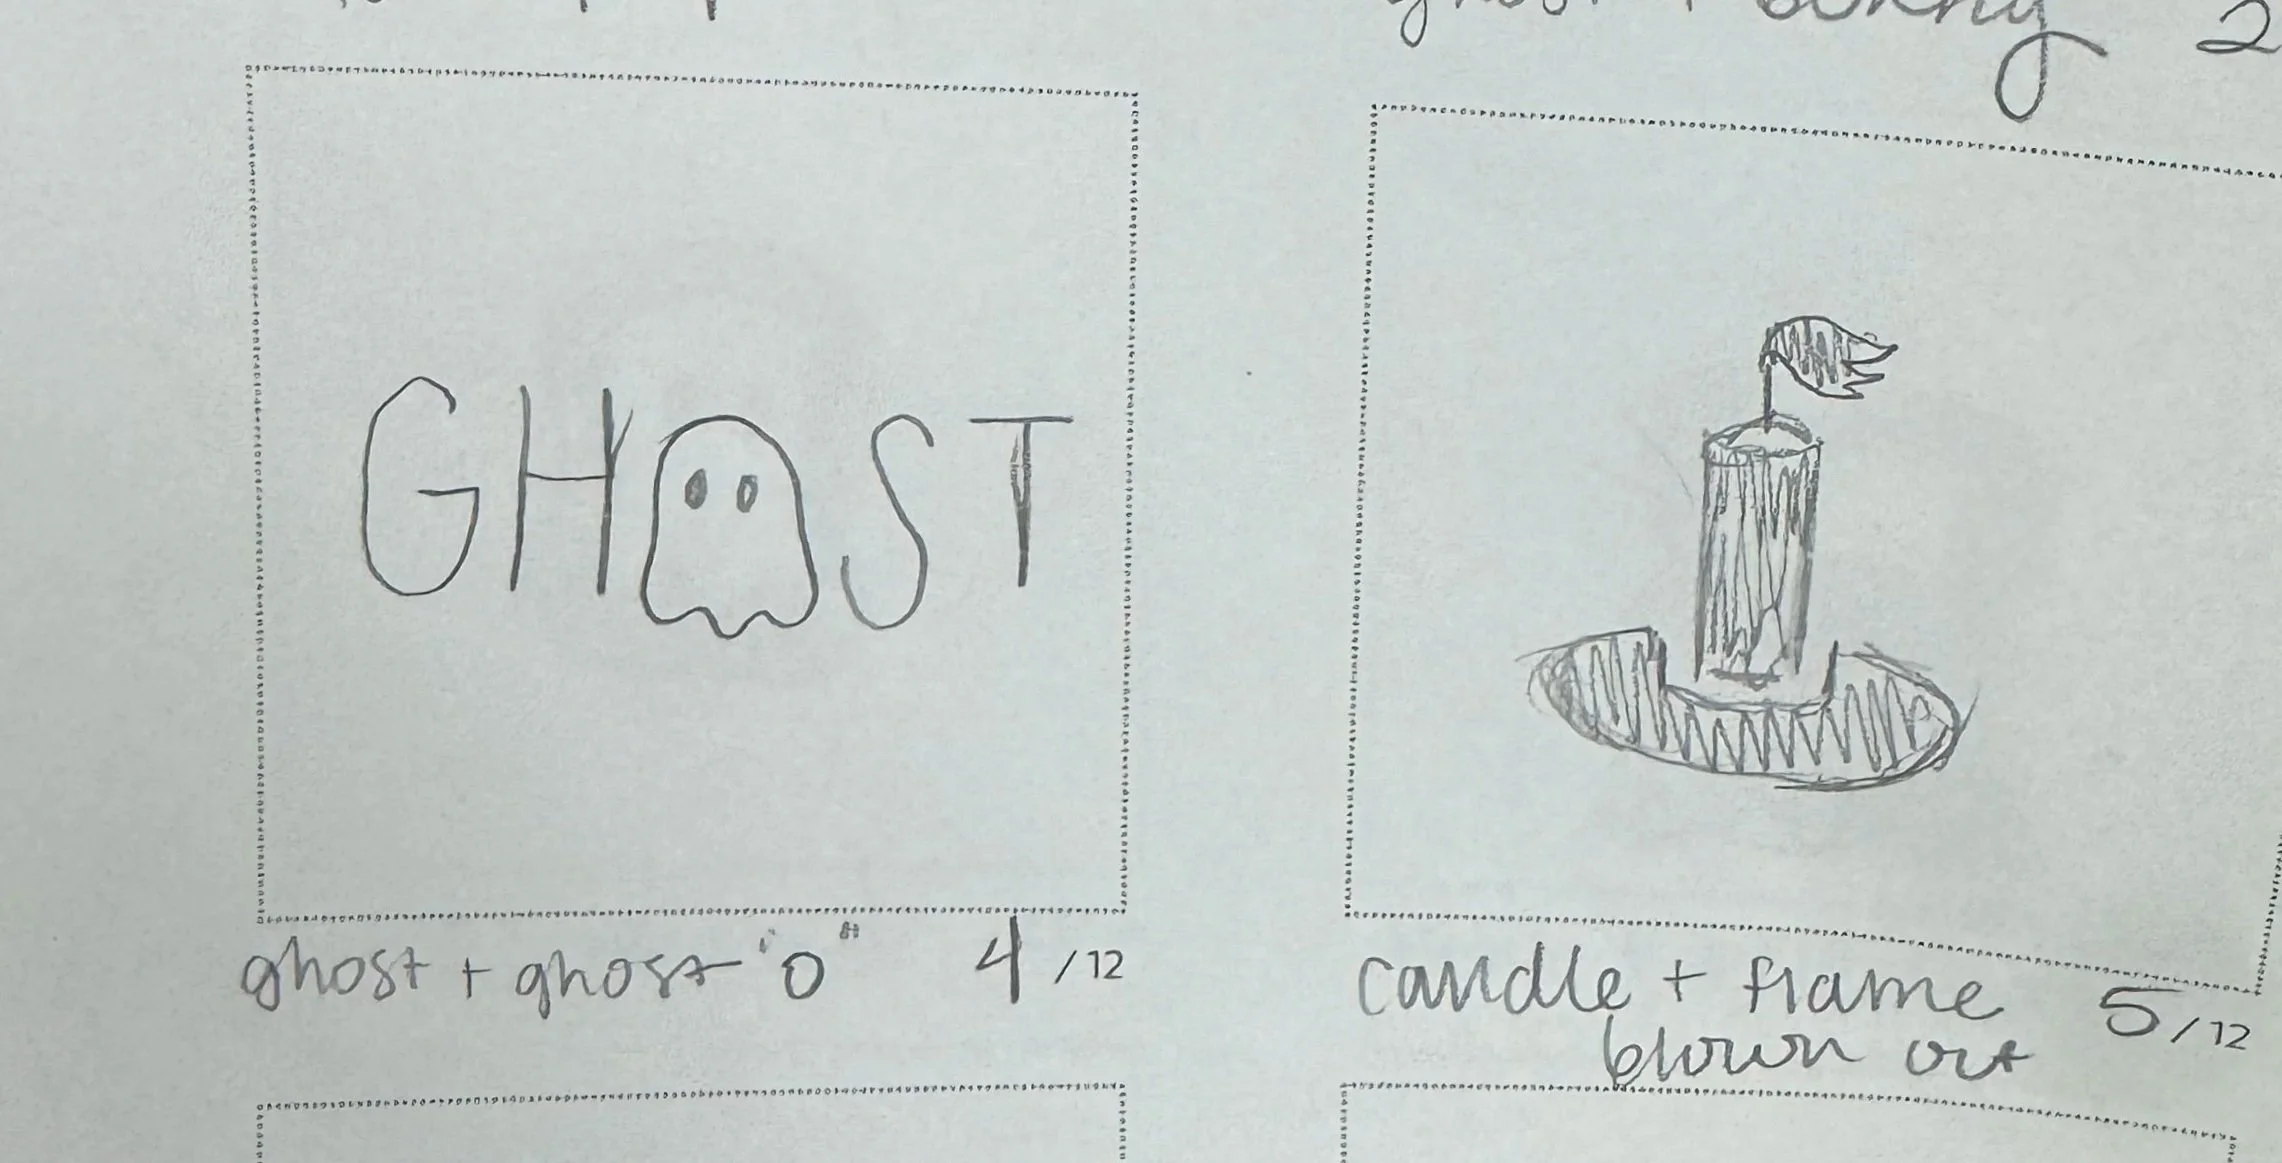 ghost + bunny 2
GHOST
ghost + ghost "o" 4/12
candle + flame 5/12
blown out